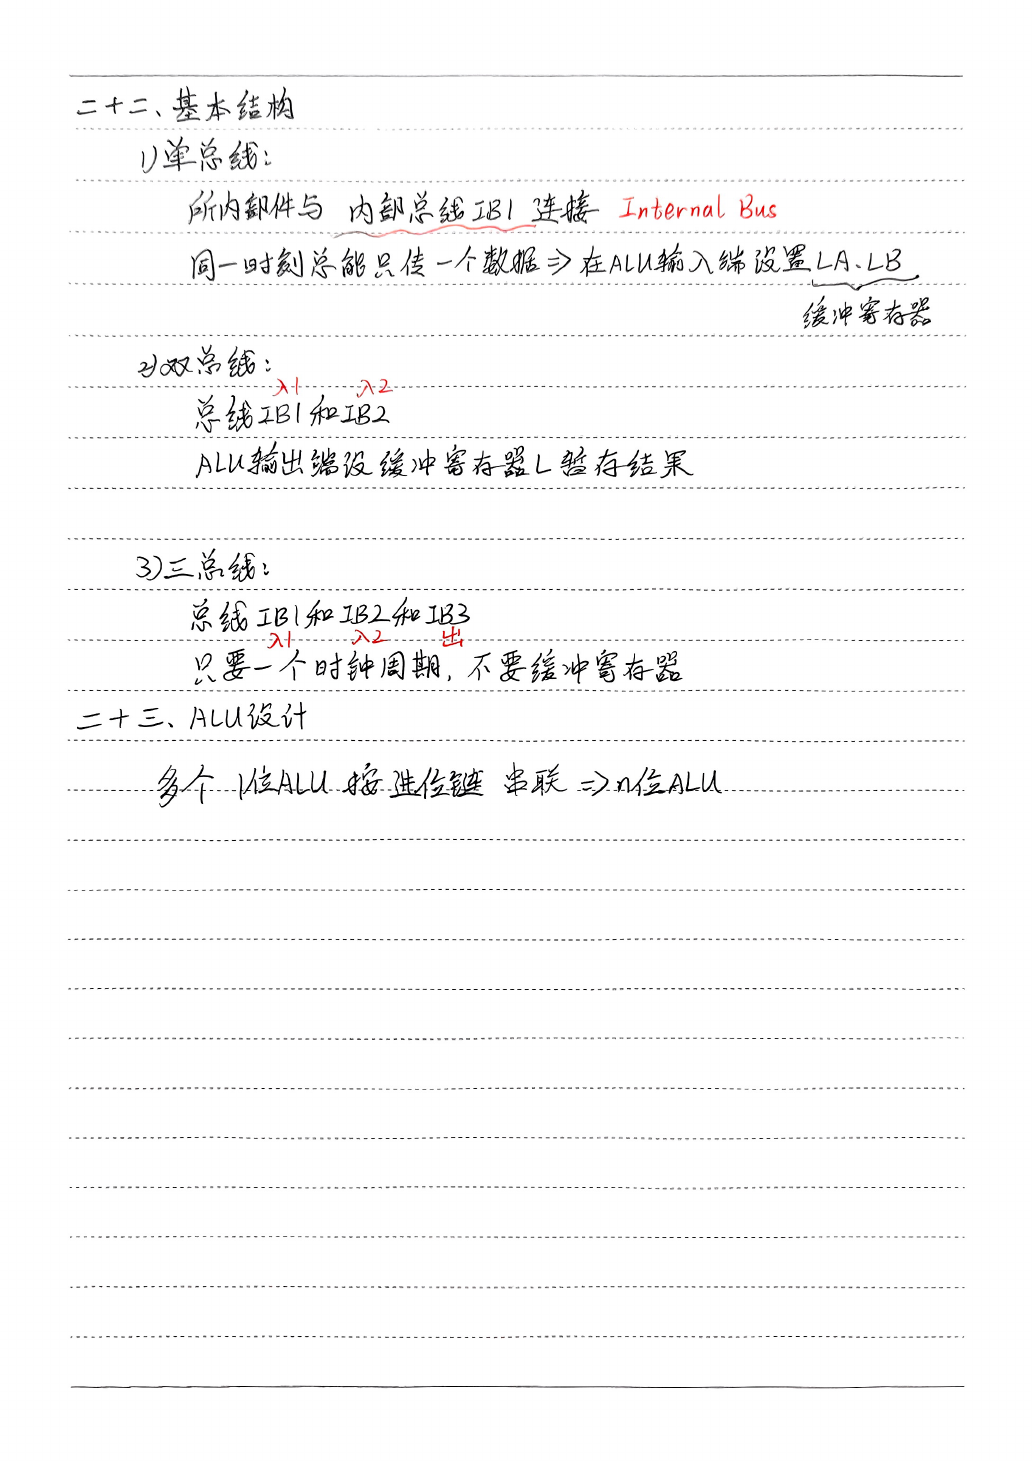 二十二、基本结构
1)单总线:
所内部件与 内部总线IB1 连接 Internal Bus
同一时刻总能只传一个数据⇒在ALU输入端设置LA、LB
缓冲寄存器
2)双总线:
入1 入2
总线IB1和IB2
ALU输出端设缓冲寄存器L暂存结果
3)三总线:
总线IB1和IB2和IB3
入1 入2 出
只要一个时钟周期,不要缓冲寄存器
二十三、ALU设计
多个 1位ALU 按进位链 串联 ⇒n位ALU